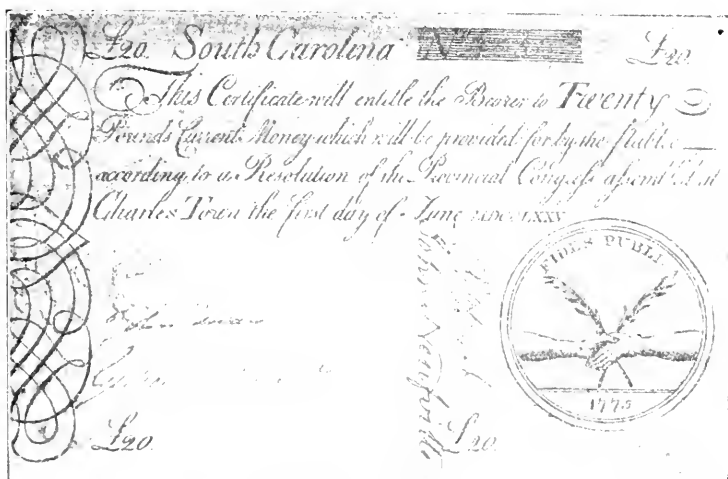 £20. South Carolina N £20.
This Certificate will entitle the Bearer to Twenty
Pounds Current Money which will be provided for by the Public
according to a Resolution of the Provincial Congress assembled at
Charles Town the first day of June MDCCLXXV
FIDES PUBLICA
1775
£20.
£20.